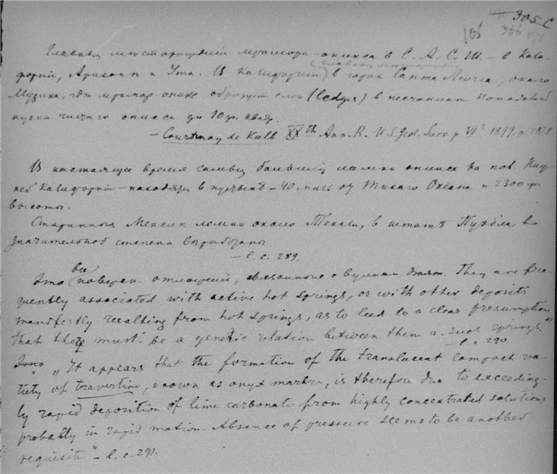 305 C
Главныя месторождения мрамора-оникса в С. А. С. Ш. – в Кали-
форнии, Аризоне и Ута. В Калифорнии в горах Санта Лючиа, около
Музика, где мрамор-оникс образует слои (ledges) в песчанике
куски чистого оникса до 10 фт. квад.
– Courtenay de Kalb XXth Ann. R. U.S. Geol. Surv. p VI² 1899. p.
В настоящее время самыя большия ломки оникса на пов.
Калифорнии находятся в – 40 миль от Тихаго Океана и 2300 ф.
высоты.
Старинныя Мексик. ломки около Текали, в штате Пуэбла в
значительной степени выработаны
– l. c. 289.
Это все поверхн. отложения, связанные с вулкан. They are fre-
quently associated with active hot springs, or with other deposits
manifestly resulting from hot springs, as to lead to a clear presumption
that there must be a genetic relation between them a. such springs"
– l. c. 290
„It appears that the formation of the translucent compact va-
riety of travertine, known as onyx marble, is therefore due to exceeding-
ly rapid deposition of lime carbonate from highly concentrated solutions
probably in rapid motion. Absence of pressure seems to be another
requisite" – l. c. 291.